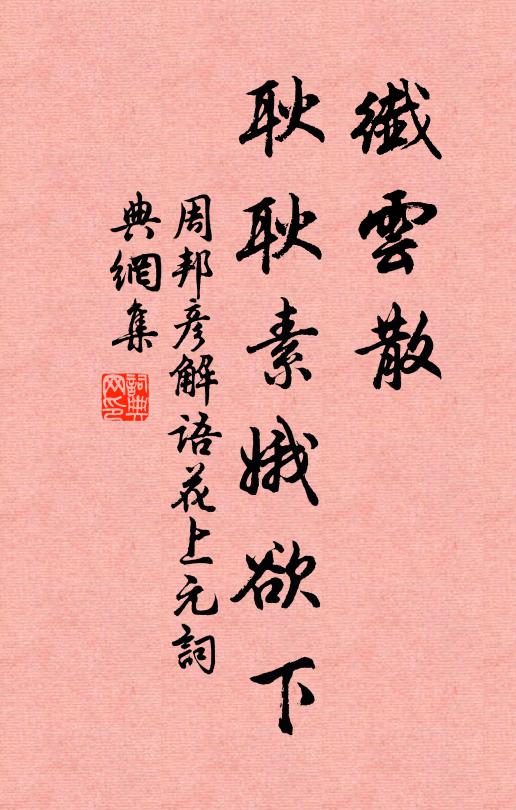 纖雲散
耿耿素娥欲下
周邦彥解語花上元詞
典網集
詞典網印